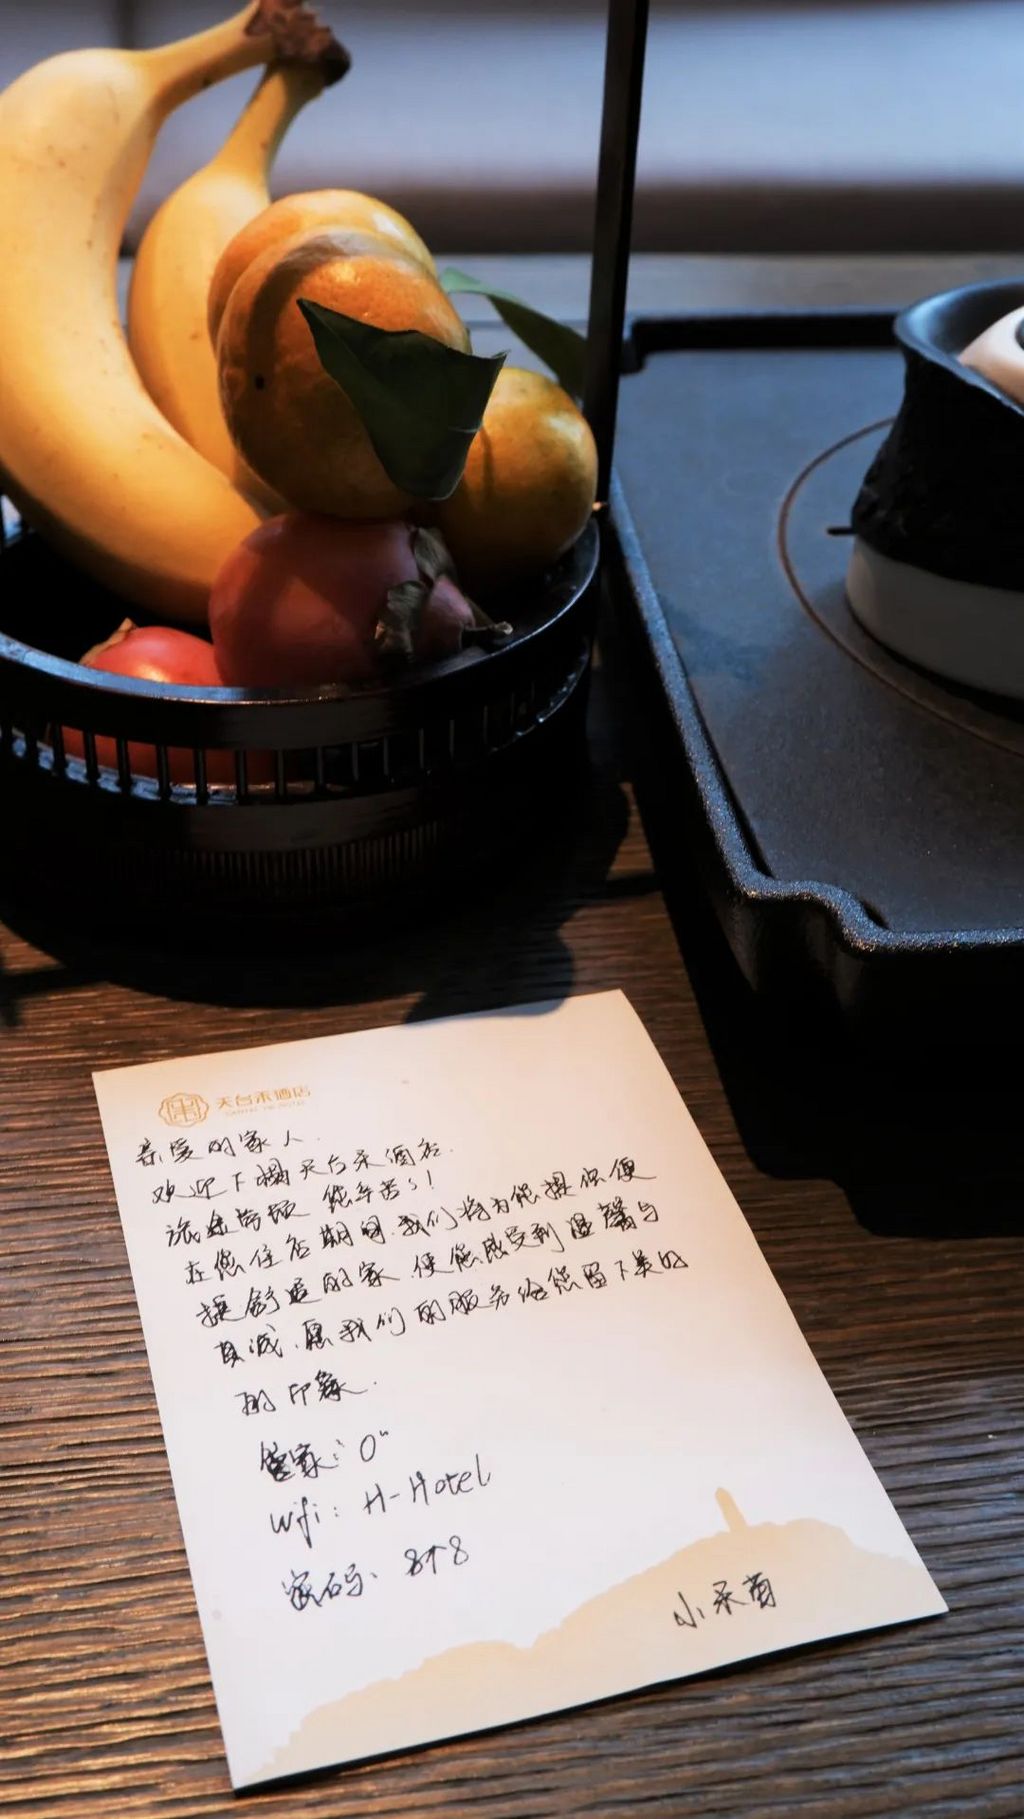 天台禾酒店
亲爱的家人.
欢迎下榻天台禾酒店.
旅途劳顿 您辛苦了!
在您住店期间.我们将为您提供便
捷舒适的家.使您感受到温馨与
真诚.愿我们的服务给您留下美好
的印象.
管家: 0"
Wifi: H-Hotel
密码: 8个8
小禾苗